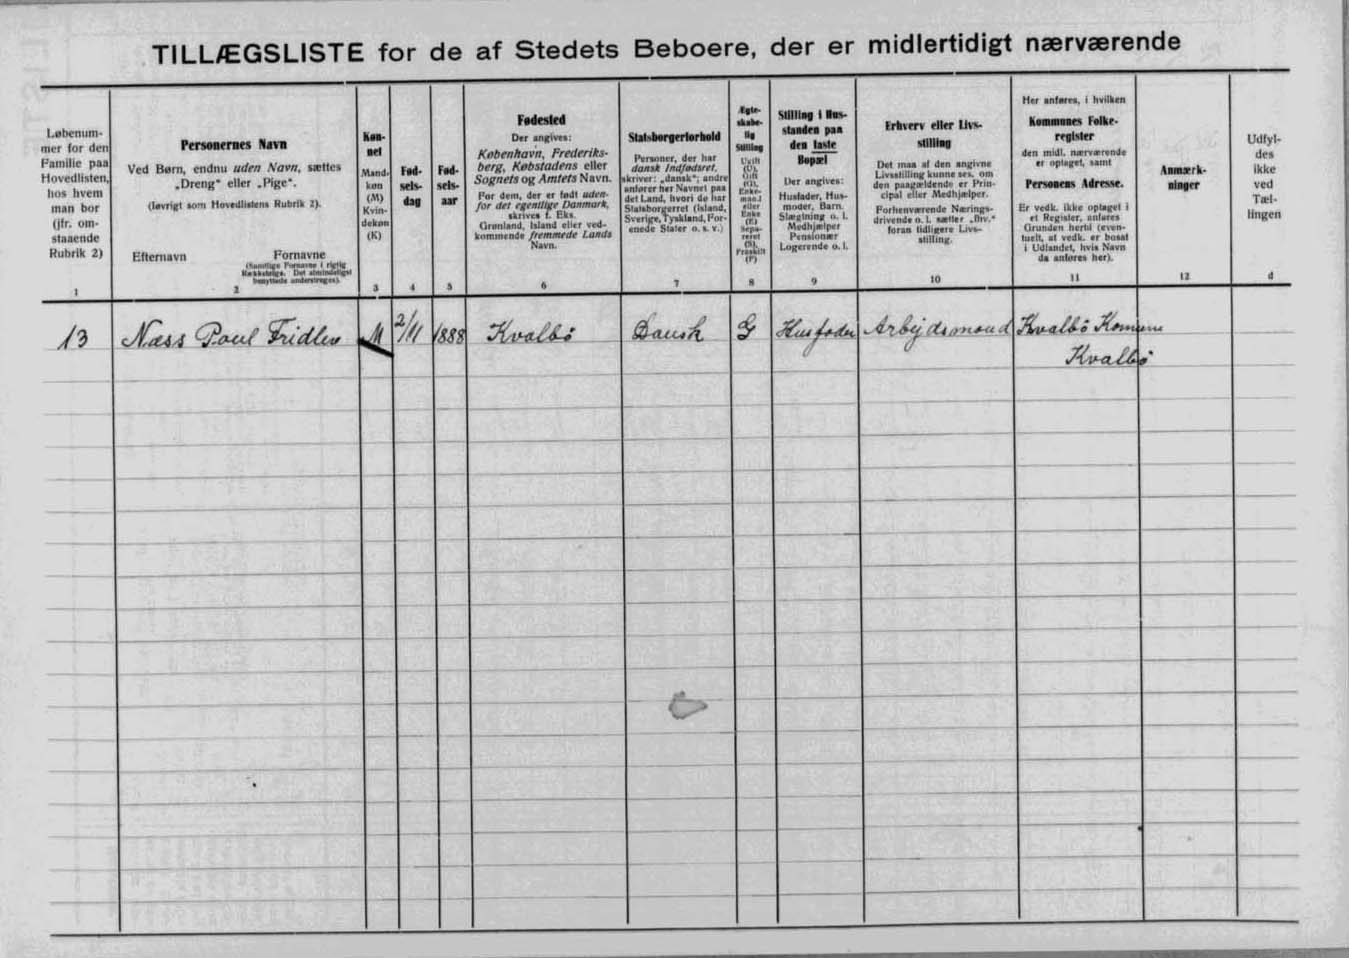 TILLÆGSLISTE for de af Stedets Beboere, der er midlertidigt nærværende
Løbenum-
mer for den
Familie paa
Hovedlisten,
hos hvem
man bor
(jfr. om-
staaende
Rubrik 2)
1
Personernes Navn
Ved Børn, endnu uden Navn, sættes
„Dreng“ eller „Pige“.
(Iøvrigt som Hovedlistens Rubrik 2).
Efternavn
Fornavne
(Samtlige Fornavne i rigtig
Rækkefølge. Det almindeligst
benyttede understreges).
2
Køn-
net
Mand-
køn
(M)
Kvin-
dekøn
(K)
3
Fød-
sels-
dag
4
Fød-
sels-
aar
5
Fødested
Der angives:
København, Frederiks-
berg, Købstadens eller
Sognets og Amtets Navn.
For dem, der er født uden-
for det egentlige Danmark,
skrives f. Eks.
Grønland, Island eller ved-
kommende fremmede Lands
Navn.
6
Statsborgerforhold
Personer, der har
dansk Indfødsret,
skriver: „dansk“; andre
anfører her Navnet paa
det Land, hvori de har
Statsborgerret (Island,
Sverige, Tyskland, For-
enede Stater o. s. v.)
7
Ægte-
skabe-
lig
Stilling
Ugift
(U),
Gift
(G),
Enke-
mand
eller
Enke
(E)
Sepa-
reret
(S),
Fraskilt
(F)
8
Stilling i Hus-
standen paa
den faste
Bopæl
Der angives:
Husfader, Hus-
moder, Barn,
Slægtning o. l.
Medhjælper
Pensionær
Logerende o. l.
9
Erhverv eller Livs-
stilling
Det maa af den angivne
Livsstilling kunne ses, om
den paagældende er Prin-
cipal eller Medhjælper.
Forhenværende Nærings-
drivende o. l. sætter „fhv.“
foran tidligere Livs-
stilling.
10
Her anføres, i hvilken
Kommunes Folke-
register
den midl. nærværende
er optaget, samt
Personens Adresse.
Er vedk. ikke optaget i
et Register, anføres
Grunden hertil (even-
tuelt, at vedk. er bosat
i Udlandet, hvis Navn
da anføres her).
11
Anmærk-
ninger
12
Udfyl-
des
ikke
ved
Tæl-
lingen
d
13 Næss Poul Fridlev M 2/11 1888 Kvalbö Dansk G Husfader Arbejdsmand Kvalbö Komune
Kvalbö